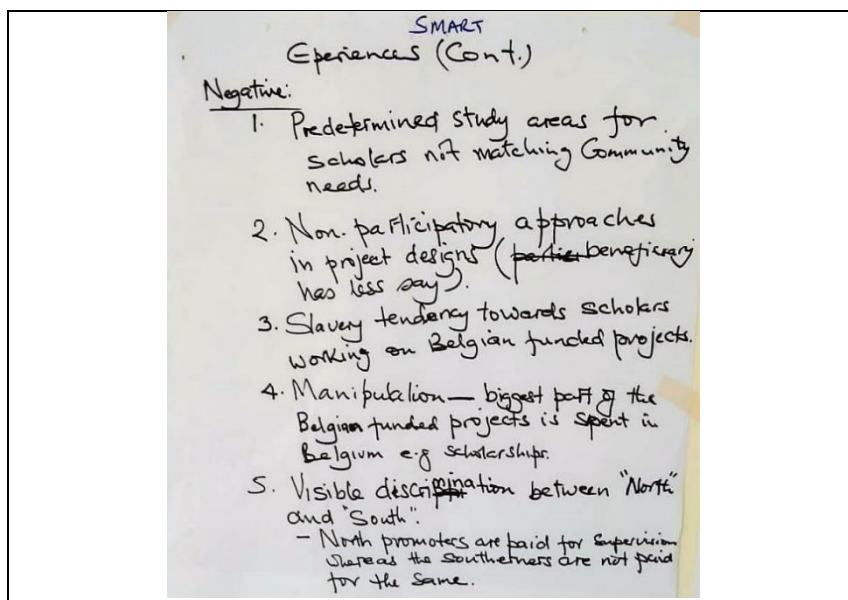 SMART
Eperiences (Cont.)
Negative:
1. Predetermined study areas for
scholars not matching Community
needs.
2. Non. participatory approaches
in project designs (beneficiary
has less say).
3. Slavery tendency towards scholars
working on Belgian funded projects.
4. Manipulation — biggest part of the
Belgian funded projects is spent in
Belgium e.g scholarships.
5. Visible discrimination between "North"
and "South".
- North promoters are paid for supervision
whereas the southerners are not paid
for the same.